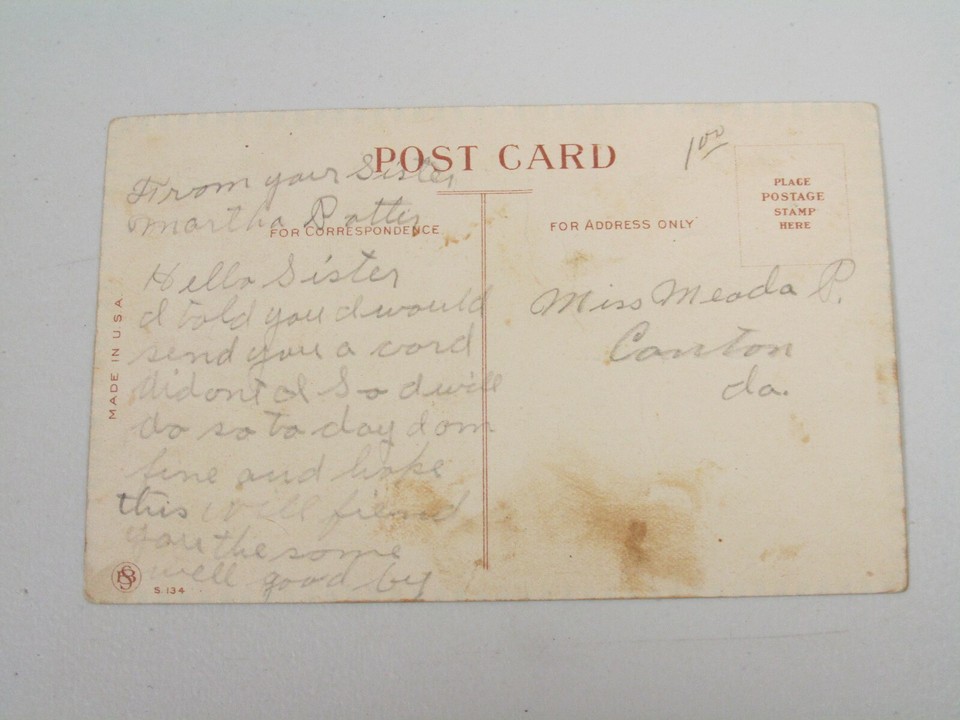 POST CARD
1 00
PLACE
POSTAGE
STAMP
HERE
From your Sister
martha Potter
FOR CORRESPONDENCE
FOR ADDRESS ONLY
Hello Sister
I told you I would
send you a card
didont I So I will
do so to day I am
fine and hoke
this will fiend
you the some
well good by
Miss Meada P.
Canton
Ia.
MADE IN U.S.A.
S. 134